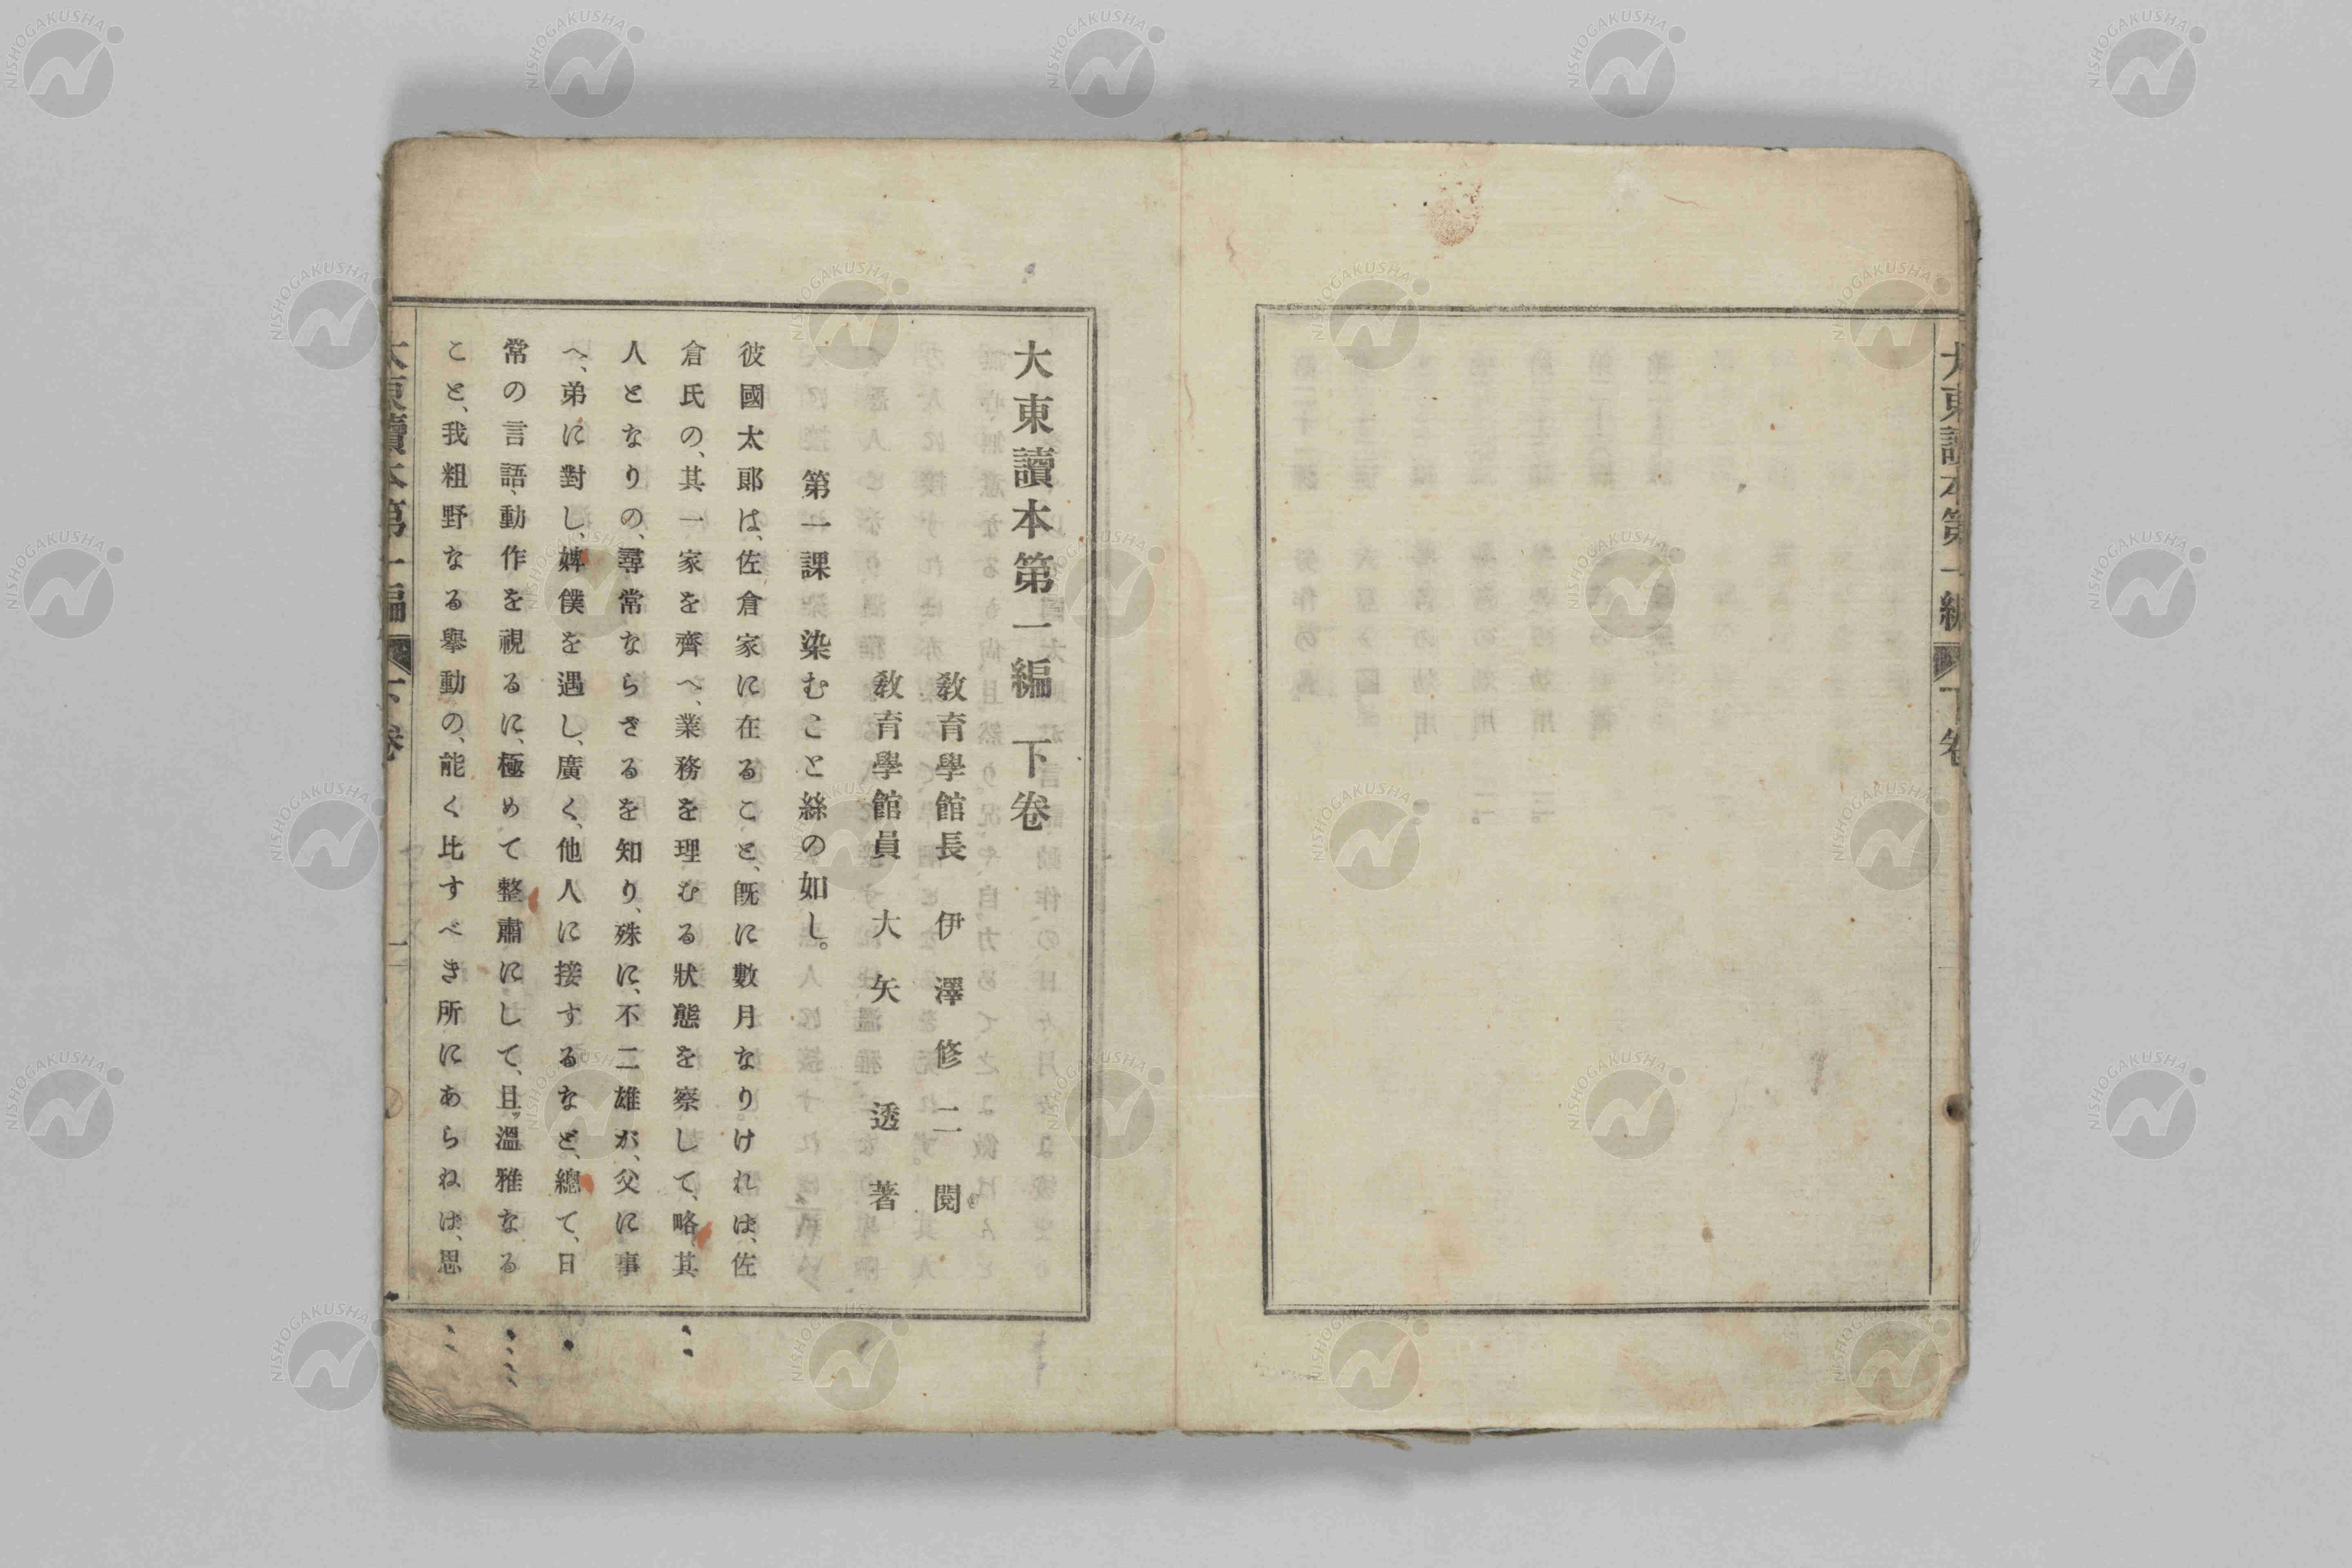 大東讀本第一編　下卷
教育學館長　伊澤修二　閲
教育學館員　大矢　透　著
第一課　染むこと絲の如し。
彼國太郎は、佐倉家に在ること、既に數月なりけれは、佐
倉氏の、其一家を齊へ、業務を理むる狀態を察して、略其
人となりの、尋常ならさるを知り、殊に、不二雄が、父に事
へ、弟に對し、婢僕を遇し、廣く、他人に接するなど、總て、日
常の言語、動作を視るに、極めて整肅にして、且、溫雅なる
こと、我粗野なる擧動の、能く比すべき所にあらねは、思
大東讀本第一編　下卷　一